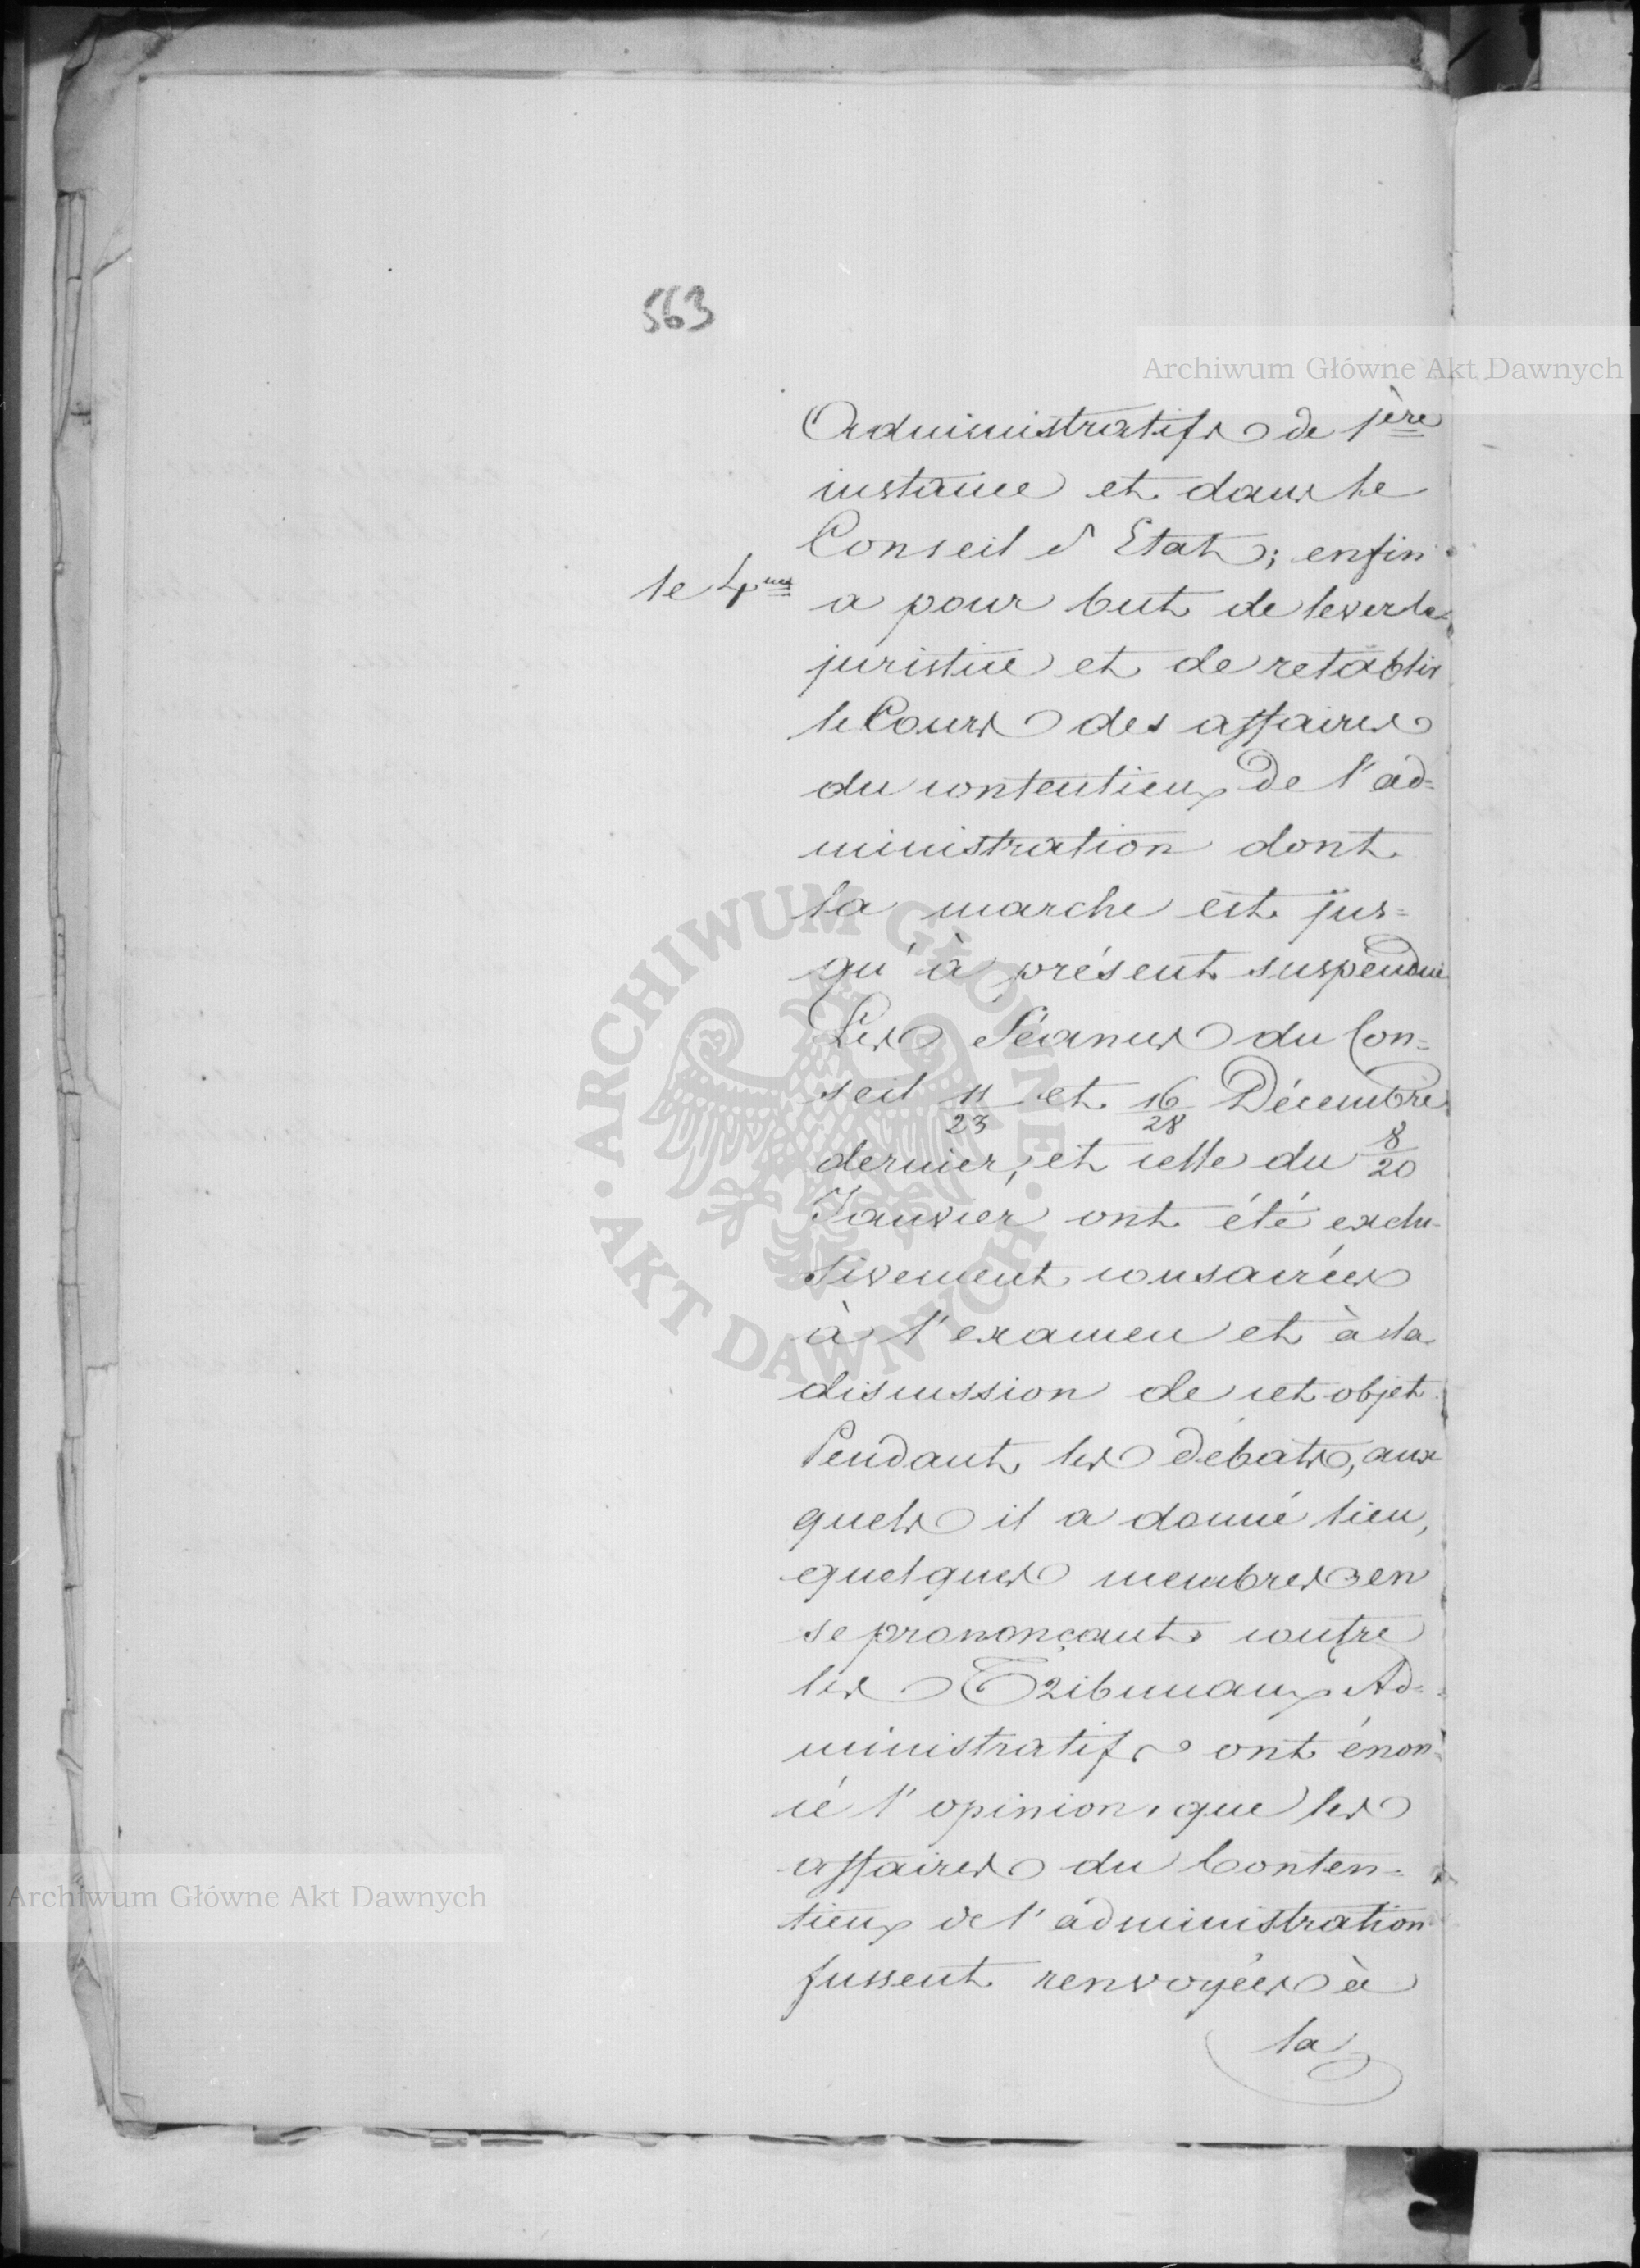 563
Archiwum Główne Akt Dawnych
Administratifs de 1ère
instance et dans le
Conseil d'Etat; enfin
le 4me a pour but de lever la
juristice et de retablir
le Cours des affaires
du contentieux de l'ad=
ministration dont
la marche est jus=
qu'à présent suspendue
Les Séances du Con=
seil 11/23 et 16/28 Décembre
dernier, et celle du 8/20
Janvier ont été exclu-
sivement consacrées
à l'examen et à la
discussion de cet objet.
Pendant les débats, aux
quels il a donné lieu,
quelques membres en
se prononçant contre
les Tribunaux Ad=
ministratifs ont énon=
cé l'opinion, que les
affaires du Conten=
tieux de l'administration
fussent renvoyées à
la
ARCHIWUM GŁÓWNE
AKT DAWNYCH
Archiwum Główne Akt Dawnych